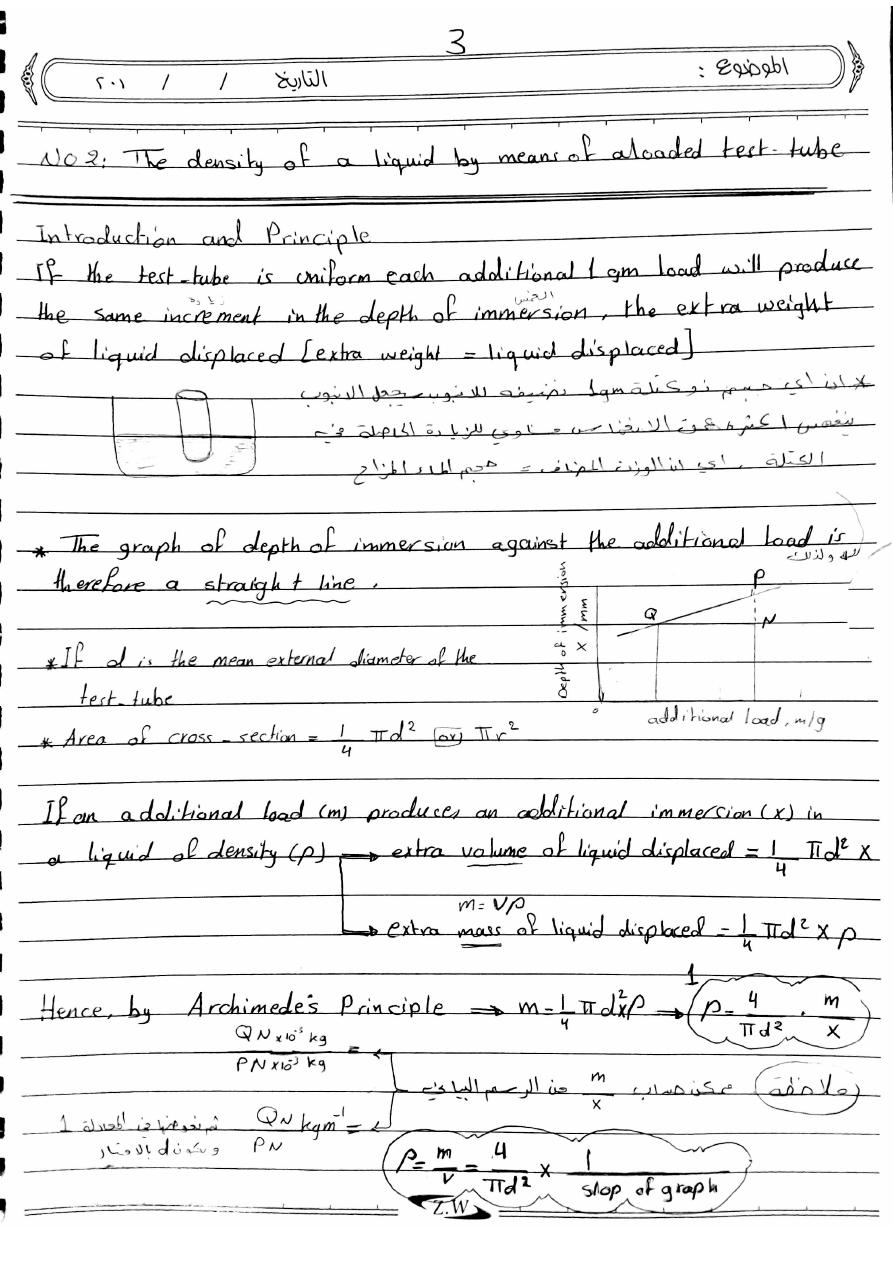 3
الموضوع :
التاريخ / / ٢٠١
NO 2: The density of a liquid by means of aloaded test-tube
Introduction and Principle
If the test-tube is uniform each additional 1 gm load will produce
زيادة الغمس
the same increment in the depth of immersion, the extra weight
of liquid displaced [extra weight = liquid displaced]
* ان اي جسم ذو كتلة 1gm نضيفه للانبوب يجعل الانبوب
ينغمس اكثر عمق الانغماس مساوي للزيادة الحاصلة في
الكتلة . اي ان الوزن المضاف = حجم الماء المزاح
* The graph of depth of immersion against the additional load is
ولذلك
therefore a straight line.
Depth of immersion
X /mm
P
Q
N
0
additional load, m/g
* If d is the mean external diameter of the
test-tube
* Area of cross-section = 1/4 πd² (or) πr²
If an additional load (m) produces an additional immersion (x) in
a liquid of density (ρ) → extra volume of liquid displaced = 1/4 πd² x
m = Vρ
→ extra mass of liquid displaced = 1/4 πd² x ρ
1
Hence, by Archimede's Principle → m = 1/4 πd²xρ → ρ = 4/πd² . m/x
QN x10⁻³ kg / PN x10⁻³ kg =
(ملاحظة) ممكن حساب m/x من الرسم البياني
QN/PN kgm⁻¹ =
ثم نعوضها في المعادلة 1
ويكون d بالامتار
ρ = m/v = 4/πd² x 1/slop of graph
Z.W